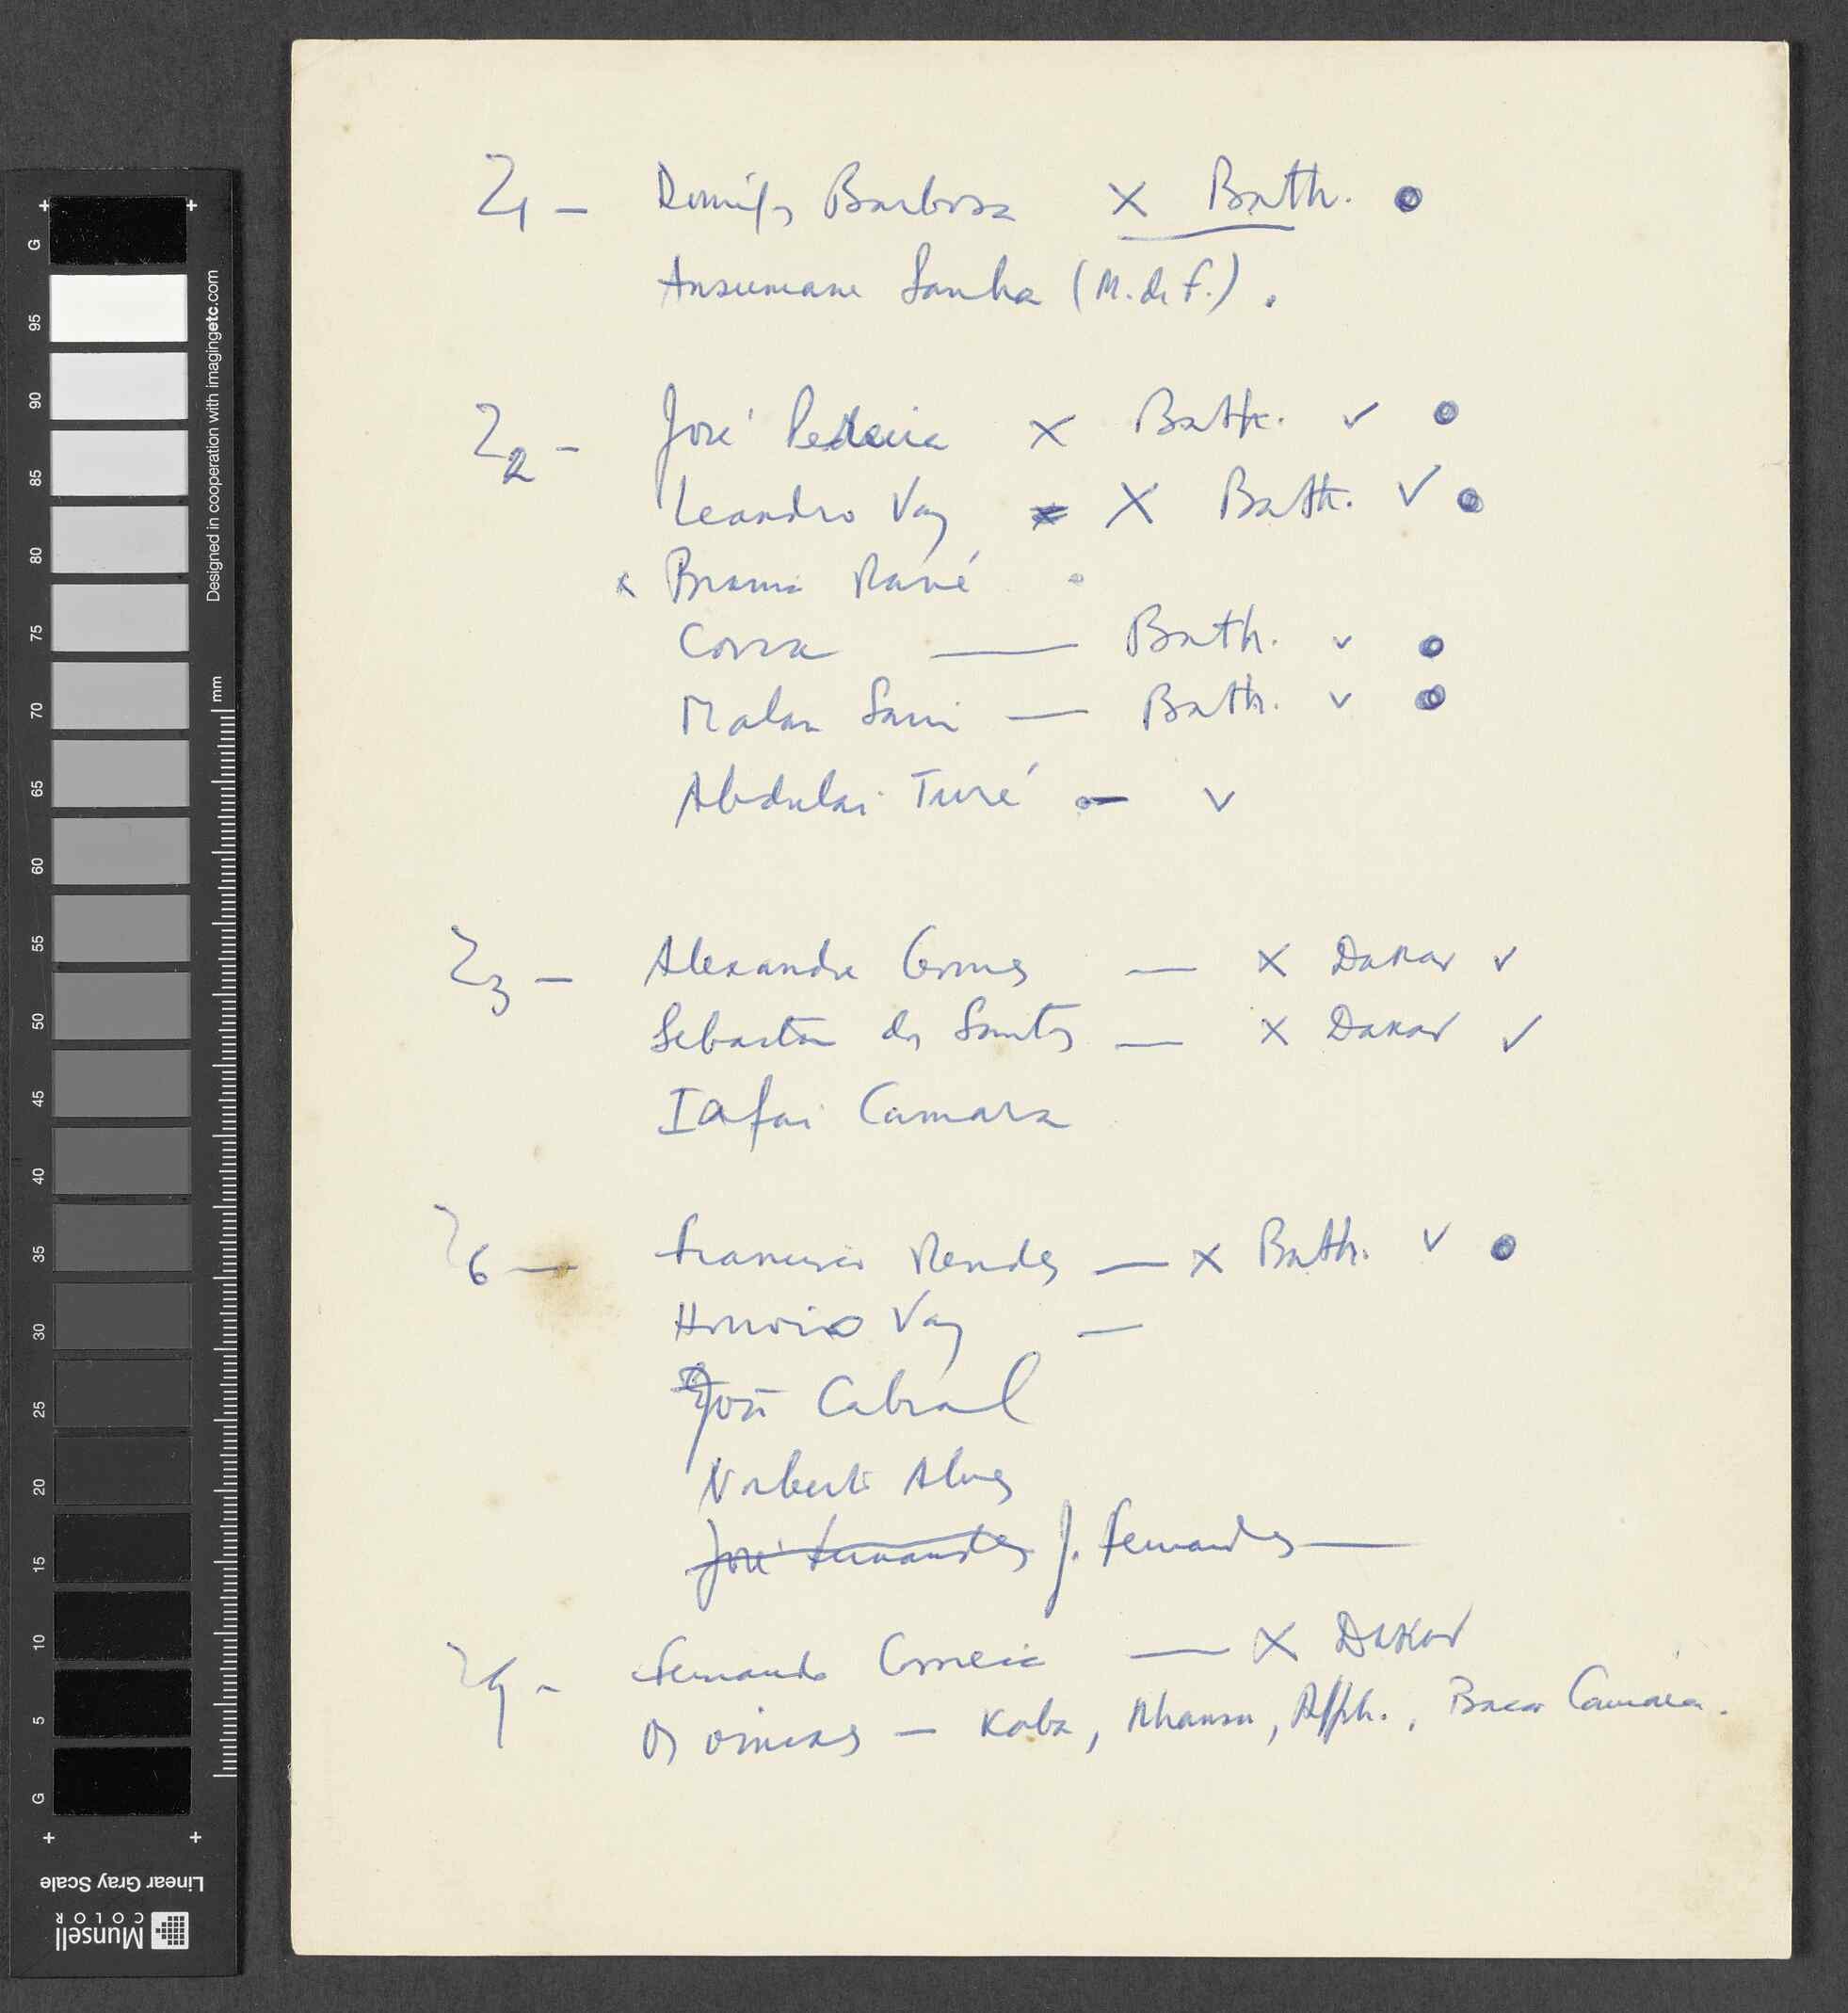 Z1 — Domingos Barbosa X Bath. ●
Ansumane Sanha (M. de F.) .
Z2 — José Pereira X Bath. ✓ ●
Leandro Vaz X Bath. ✓ ●
x Braima Mané
Correa — Bath. ✓ ●
Malan Sani — Bath. ✓ ●
Abdulai Turé — ✓
Z3 — Alexandre Gomes — X Dakar ✓
Sebastão dos Santos — X Dakar ✓
Iafai Camara
Z6 — Francisco Mendes — X Bath. ✓ ●
Honorio Vaz —
José Cabral
Norberto Alves
José Fernandes J. Fernandes —
Fernando Correia — X Dakar
Os — Koba, Bacar Camára.
G 95 90 85 80 75 70 65 60 55 50 45 40 35 30 25 20 15 10 5 G
mm
Designed in cooperation with imagingetc.com
Linear Gray Scale
Munsell
COLOR